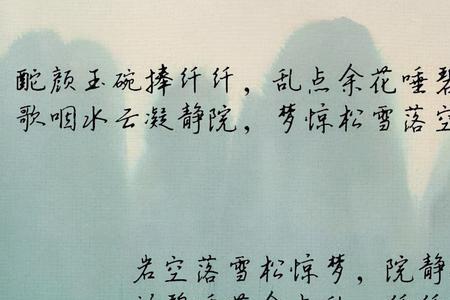 酡颜玉碗捧纤纤，乱点余花唾碧
歌咽水云凝静院，梦惊松雪落空
岩空落雪松惊梦，院静